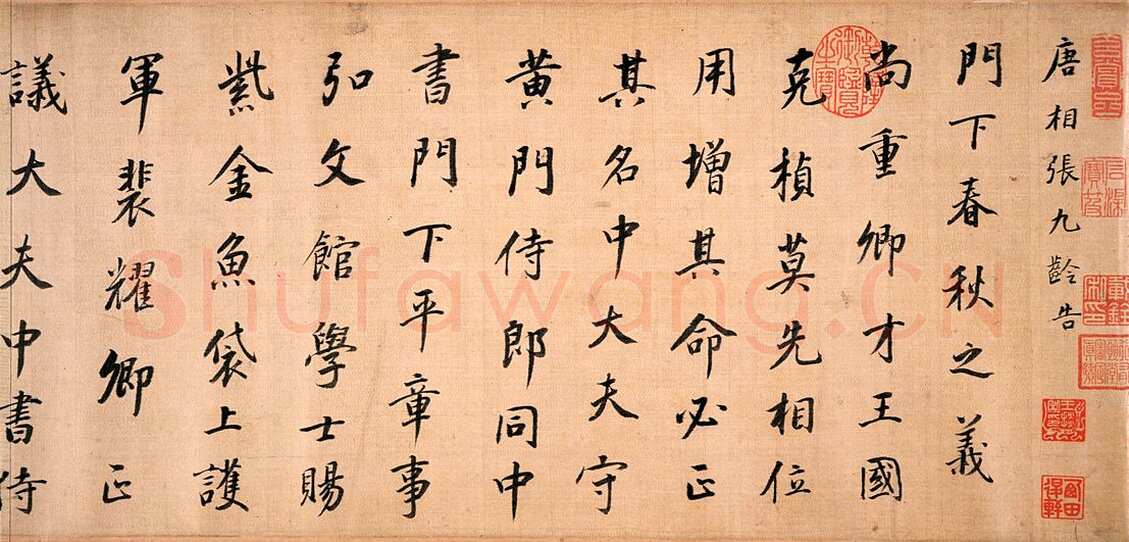 唐相張九齡告
門下春秋之義
尚重卿才王國
克楨莫先相位
用增其命必正
其名中大夫守
黃門侍郎同中
書門下平章事
弘文館學士賜
紫金魚袋上護
軍裴耀卿正
議大夫中書侍
shufawang.CN